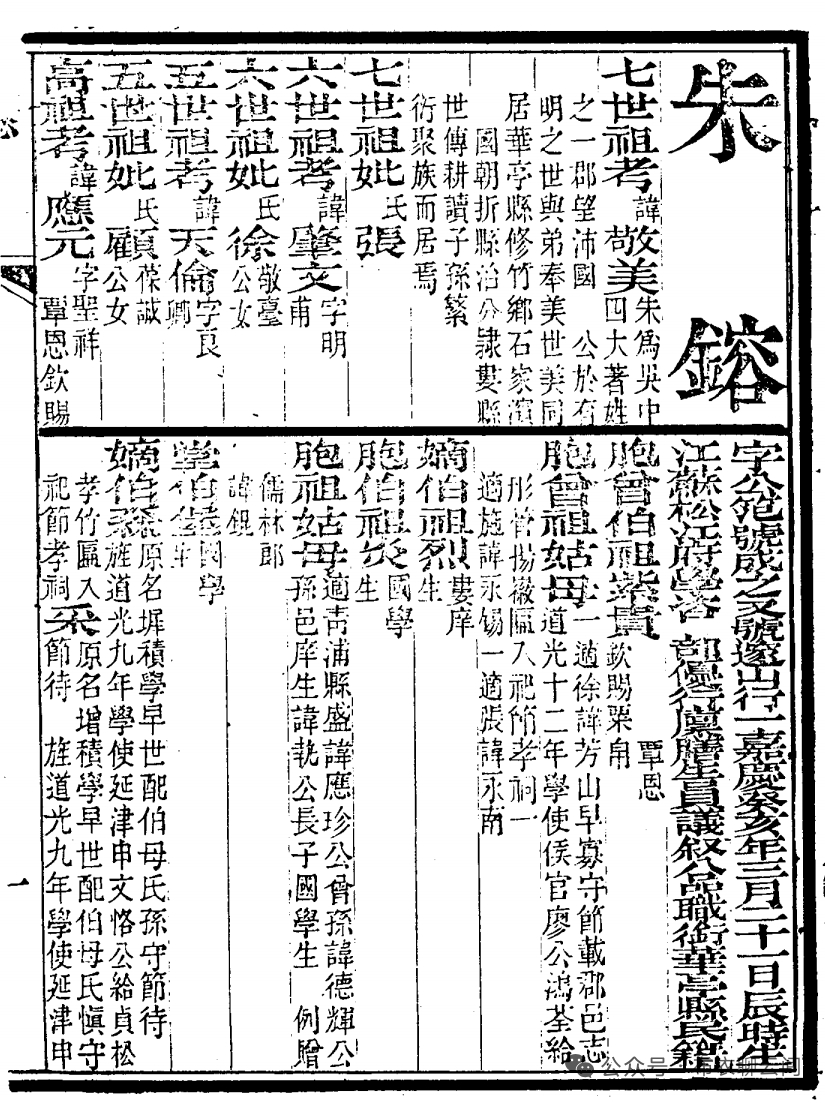 朱鎔
七世祖考諱敬美朱爲吳中四大著姓
之一郡望沛國 公於有
明之世與弟奉美世美同
居華亭縣修竹鄉石家濱
國朝折縣治公隸婁縣
世傳耕讀子孫繁
衍聚族而居焉
七世祖妣氏張
六世祖考諱肇文字明甫
六世祖妣氏徐敬臺公女
五世祖考諱天倫字良卿
五世祖妣氏顧葆誠公女
高祖考諱應元字聖祥
覃恩欽賜
字公範號成之又號遂山行一嘉慶癸亥年三月二十一日辰時生
江蘇松江府學咨 部優行廩膳生員議敘八品職銜華亭縣民籍
胞曾伯祖紫貴 覃恩欽賜粟帛
胞曾祖姑母一適徐諱芳山早寡守節載郡邑志
道光十二年學使侯官廖公鴻荃給
彤管揚徽匾入祀節孝祠一
適施諱永錫一適張諱永南
嫡伯祖烈婁庠生
胞伯祖炎國學生
胞祖姑母適青浦縣盛諱應珍公曾孫諱德輝公
孫邑庠生諱執公長子國學生 例贈
儒林郎
諱錕
堂伯 國學生
嫡伯 原名墀積學早世配伯母氏孫守節待
旌道光九年學使延津申文恪公給貞松
孝竹匾入
祀節孝祠 采原名增積學早世配伯母氏愼守
節待 旌道光九年學使延津申
一
公众号